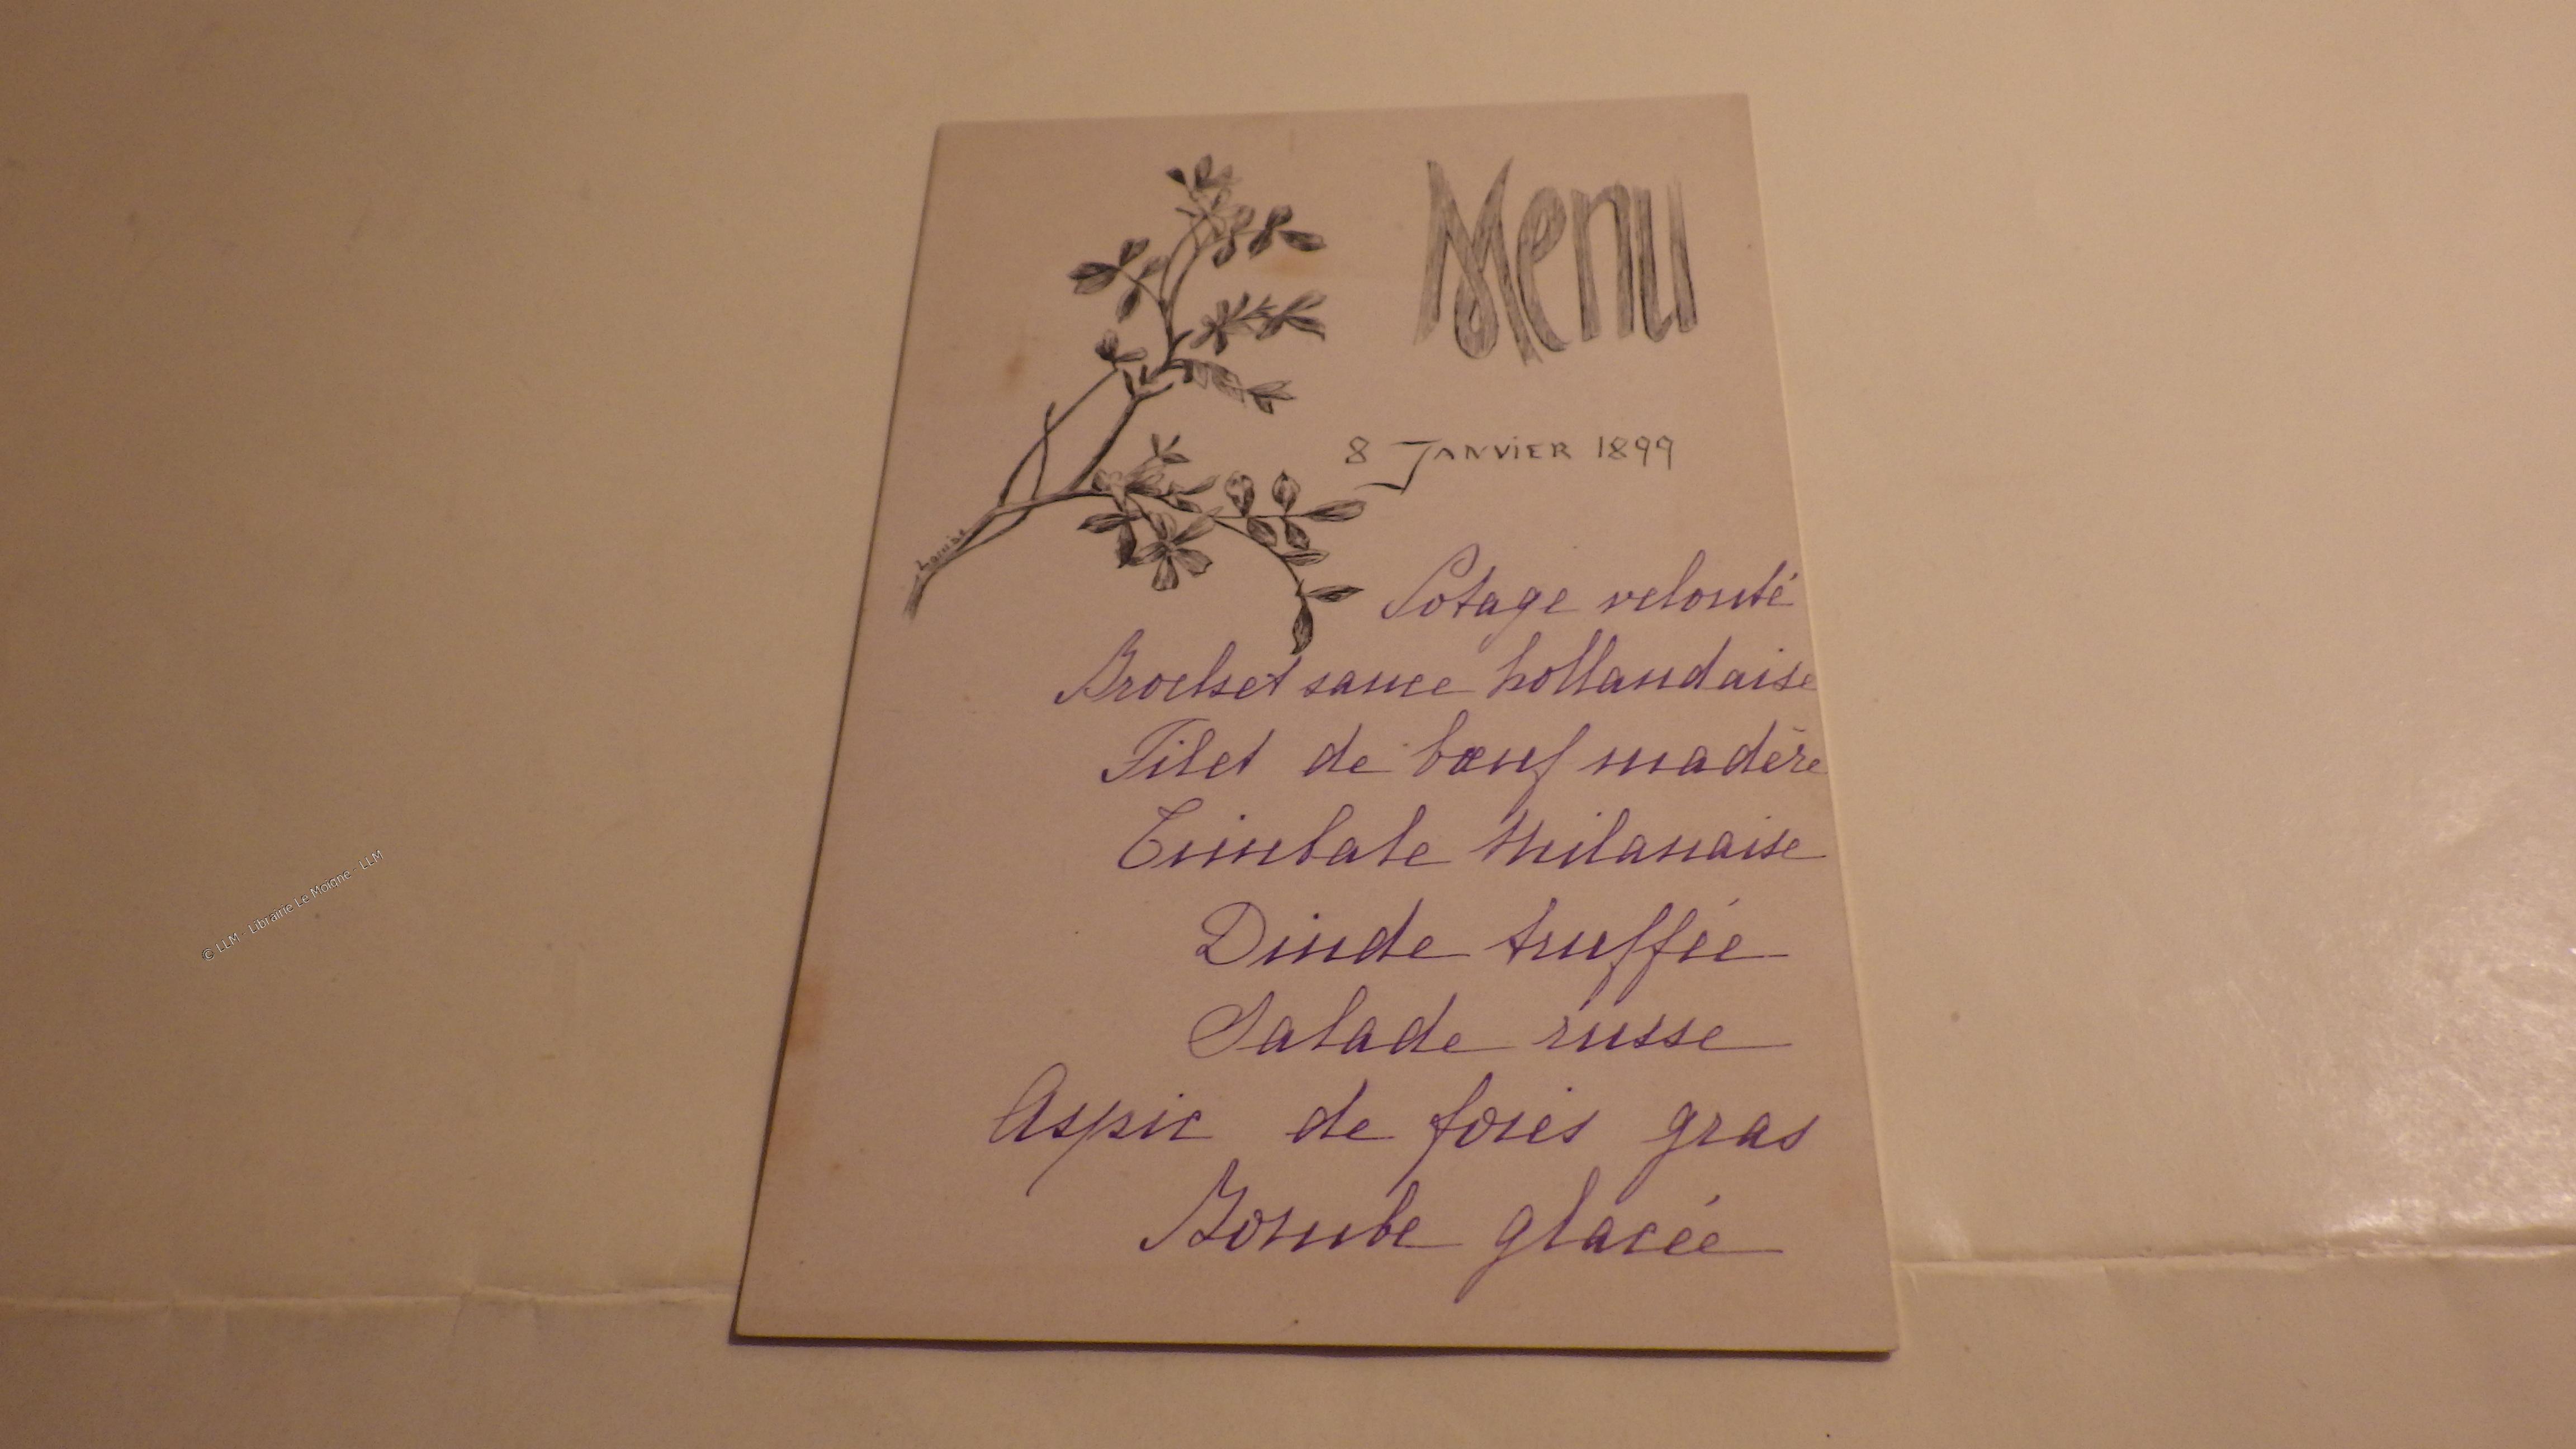 Menu
8 JANVIER 1899
Louise
Potage velouté
Brochet sauce hollandaise
Filet de bœuf madère
Timbale Milanaise
Dinde truffée
Salade russe
Aspic de foies gras
Bombe glacée
© LLM - Librairie Le Moigne - LLM